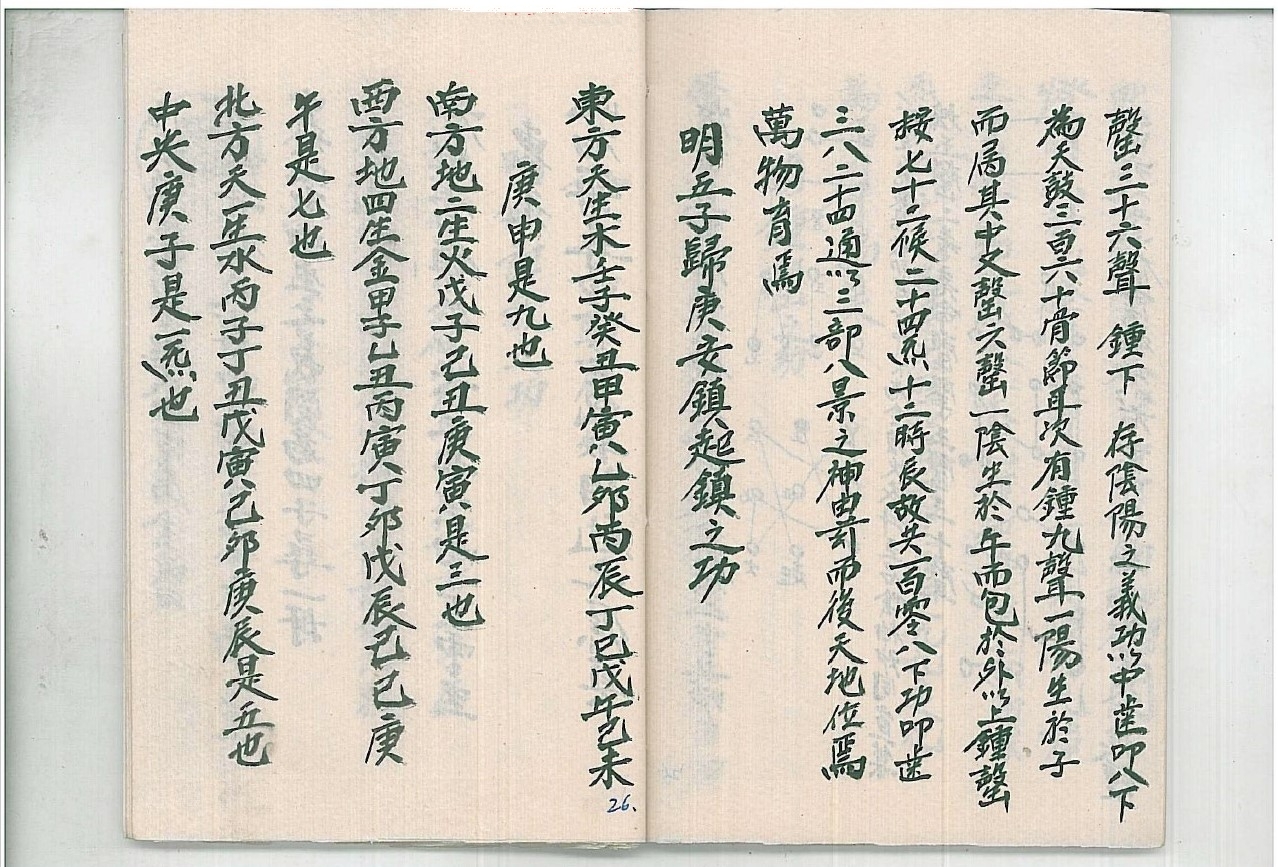 罄三十六聲 鍾下 存陰陽之義功以中歯叩八下
為天鼓三百六十骨節耳次有鍾九聲一陽生於子
而居其中又罄六罄一陰生於午而包於外以上鍾罄
按七十二候二十四炁十二時辰故共一百零八下功叩歯
三八二十四通以三部八景之神由前而後天地位焉
萬物育焉
明五子歸庚安鎮起鎮之功
東方天生木壬子癸丑甲寅乙卯丙辰丁巳戊午己未
庚申是九也
南方地二生火戊子己丑庚寅是三也
西方地四生金甲子乙丑丙寅丁卯戊辰己巳庚
午是七也
北方天一生水丙子丁丑戊寅己卯庚辰是五也
中央庚子是一炁也
26.